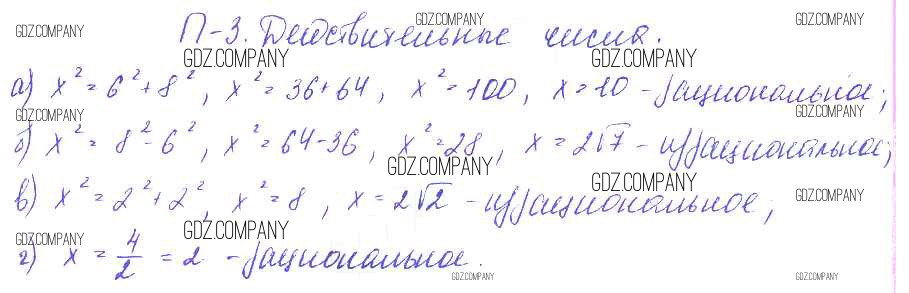 П-3. Действительные числа.
а) x² = 6² + 8², x² = 36 + 64, x² = 100, x = 10 - рациональное;
б) x² = 8² - 6², x² = 64 - 36, x² = 28, x = 2√7 - иррациональное;
в) x² = 2² + 2², x² = 8, x = 2√2 - иррациональное;
г) x = 4/2 = 2 - рациональное.
GDZ.COMPANY GDZ.COMPANY GDZ.COMPANY
GDZ.COMPANY GDZ.COMPANY
GDZ.COMPANY GDZ.COMPANY
GDZ.COMPANY
GDZ.COMPANY GDZ.COMPANY
GDZ.COMPANY GDZ.COMPANY
GDZ.COMPANY GDZ.COMPANY